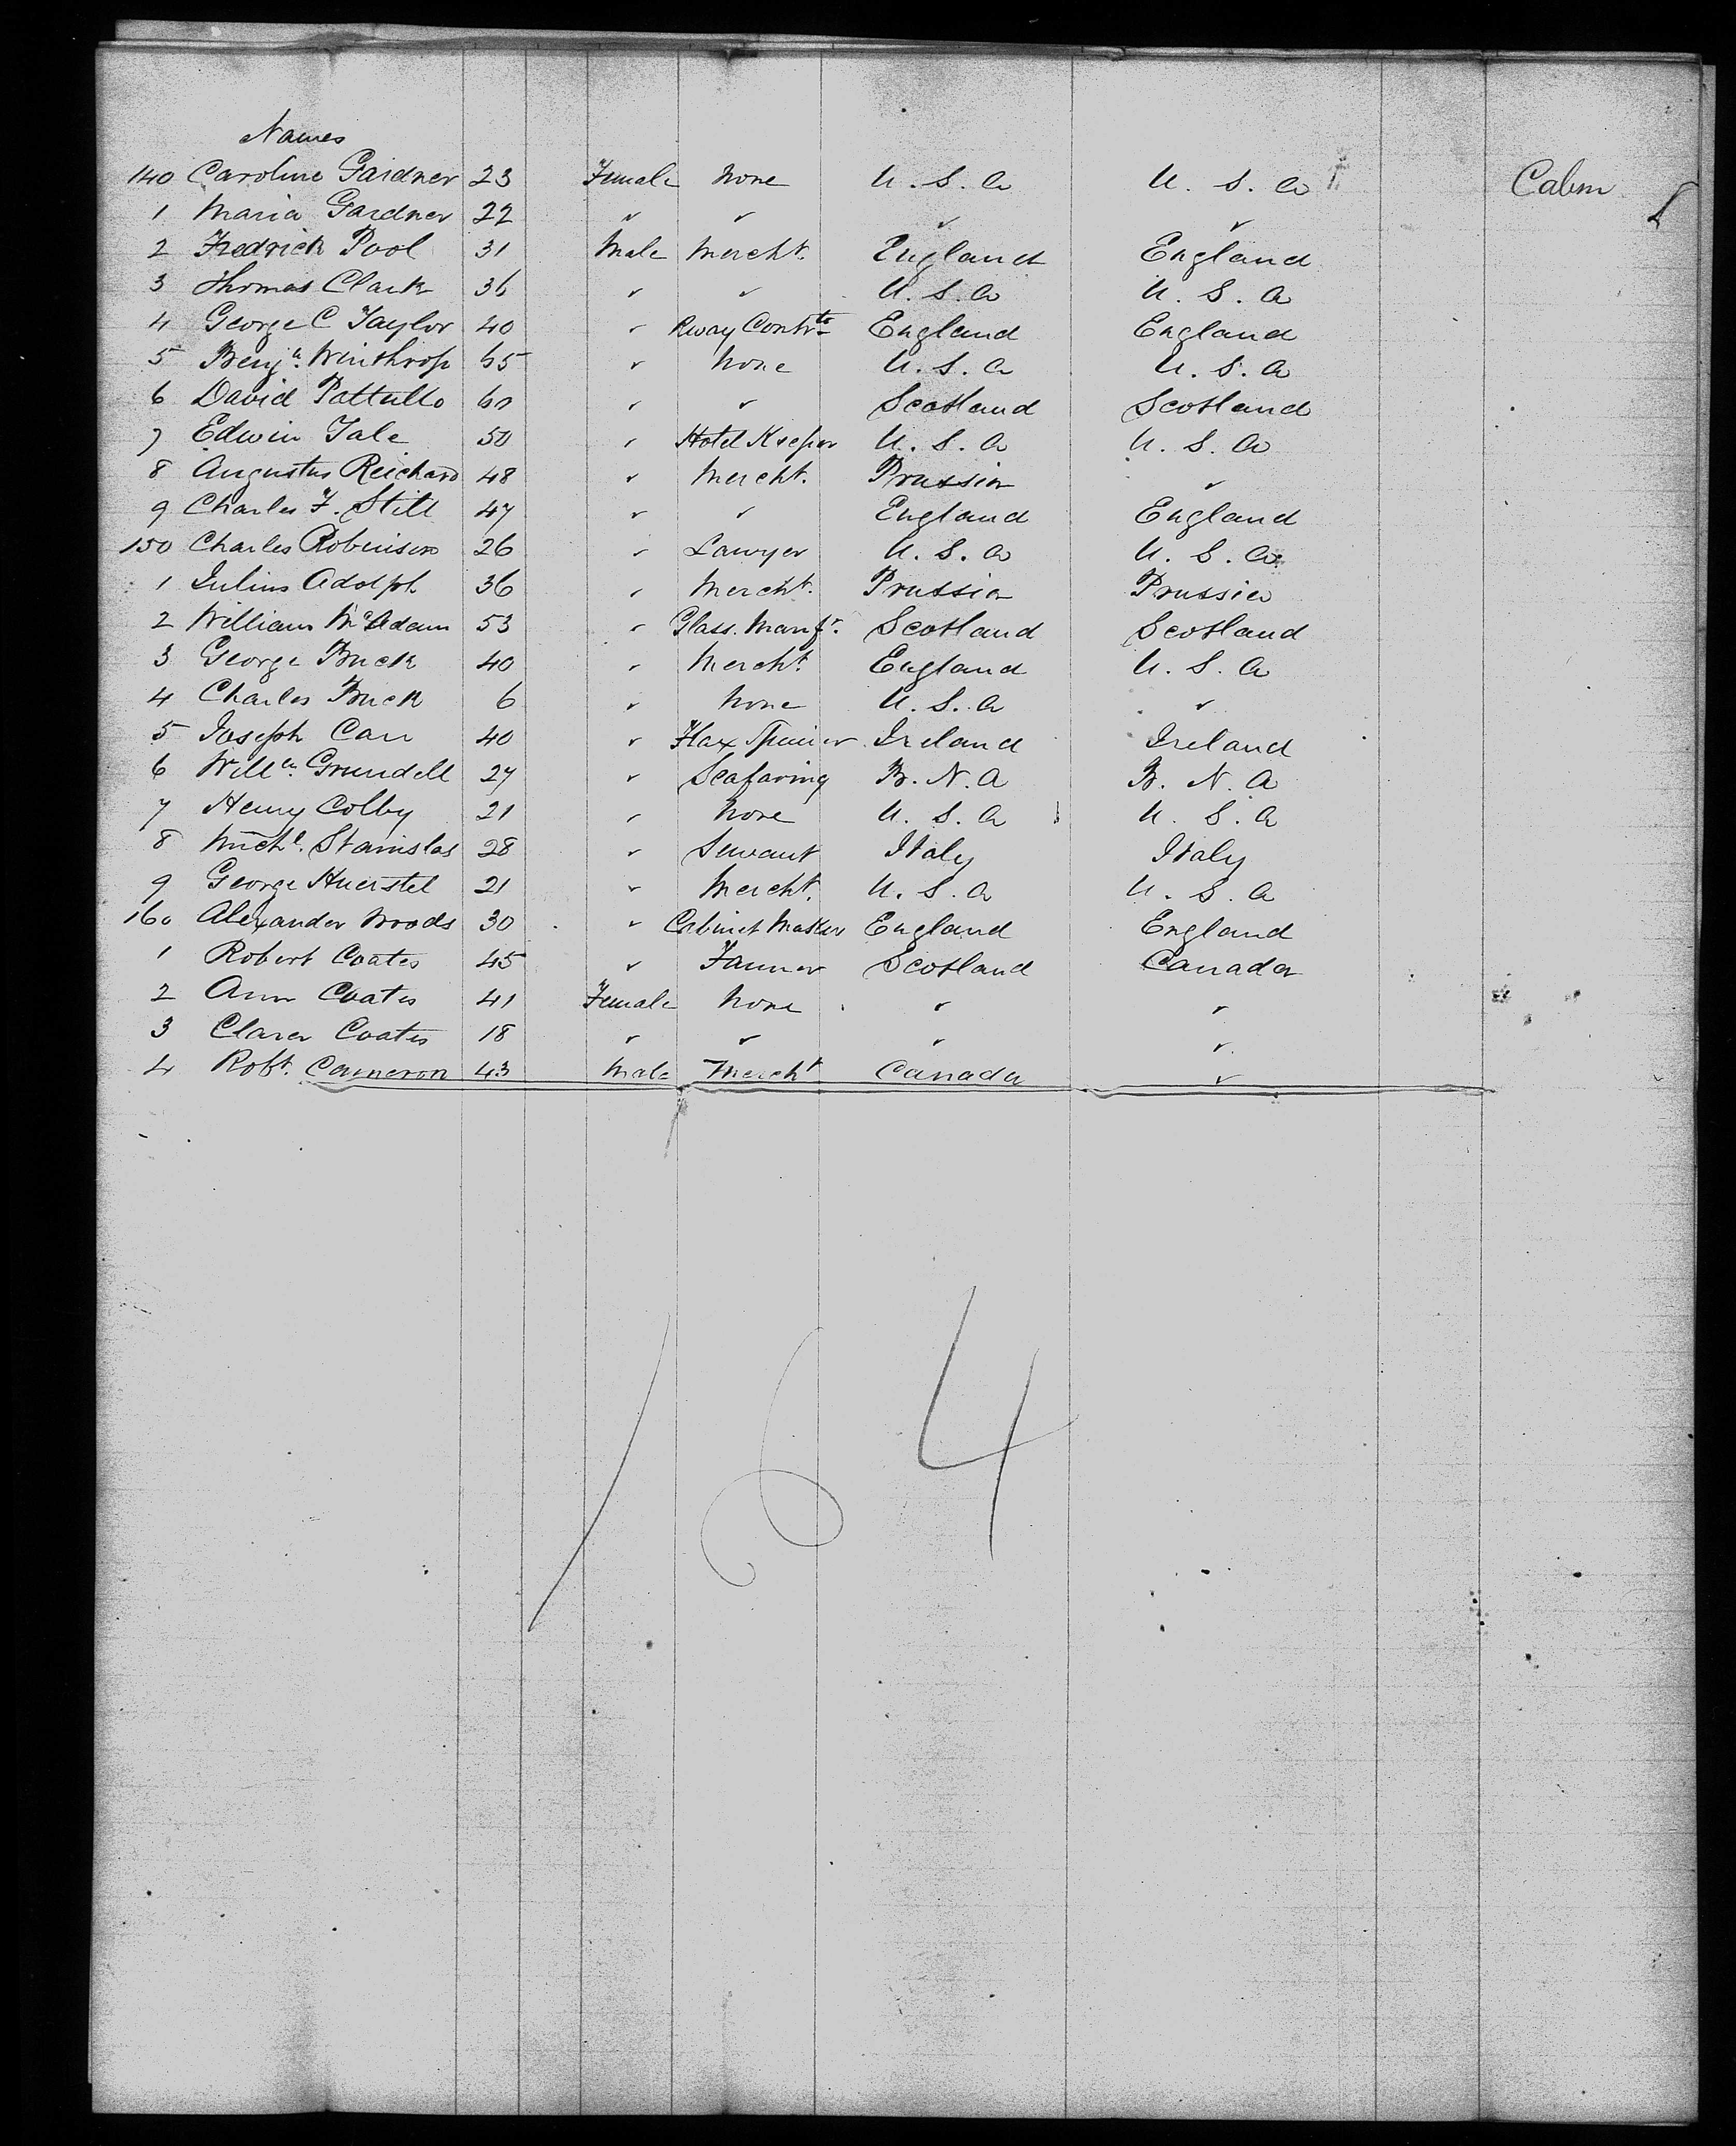 Names
140 Caroline Gardner 23 Female None U. S. A U. S. A Cabin
1 Maria Gardner 22 " " " "
2 Fredrick Pool 31 Male Mercht. England England
3 Thomas Clark 36 " " U. S. A U. S. A
4 George C Taylor 40 " Rway Contr. England England
5 Benjn. Winthrop 65 " None U. S. A U. S. A
6 David Pattullo 60 " " Scotland Scotland
7 Edwin Yale 50 " Hotel Keeper U. S. A U. S. A
8 Augustus Reichard 48 " Mercht. Prussia "
9 Charles F. Still 47 " " England England
150 Charles Robinson 26 " Lawyer U. S. A U. S. A
1 Julius Adolph 36 " Mercht. Prussia Prussia
2 William McAdam 53 " Glass Manfr. Scotland Scotland
3 George Buck 40 " Mercht England U. S. A
4 Charles Buck 6 " None U. S. A "
5 Joseph Carr 40 " Flax Spinner Ireland Ireland
6 Willm. Grundell 27 " Seafaring B. N. A B. N. A
7 Henry Colby 21 " None U. S. A U. S. A
8 Michl. Stanislas 28 " Servant Italy Italy
9 George Huerstel 21 " Mercht. U. S. A U. S. A
160 Alexander Woods 30 " Cabinet Maker England England
1 Robert Coates 45 " Farmer Scotland Canada
2 Ann Coates 41 Female None " "
3 Clara Coates 18 " " " "
4 Robt. Cameron 43 Male Mercht Canada "
164